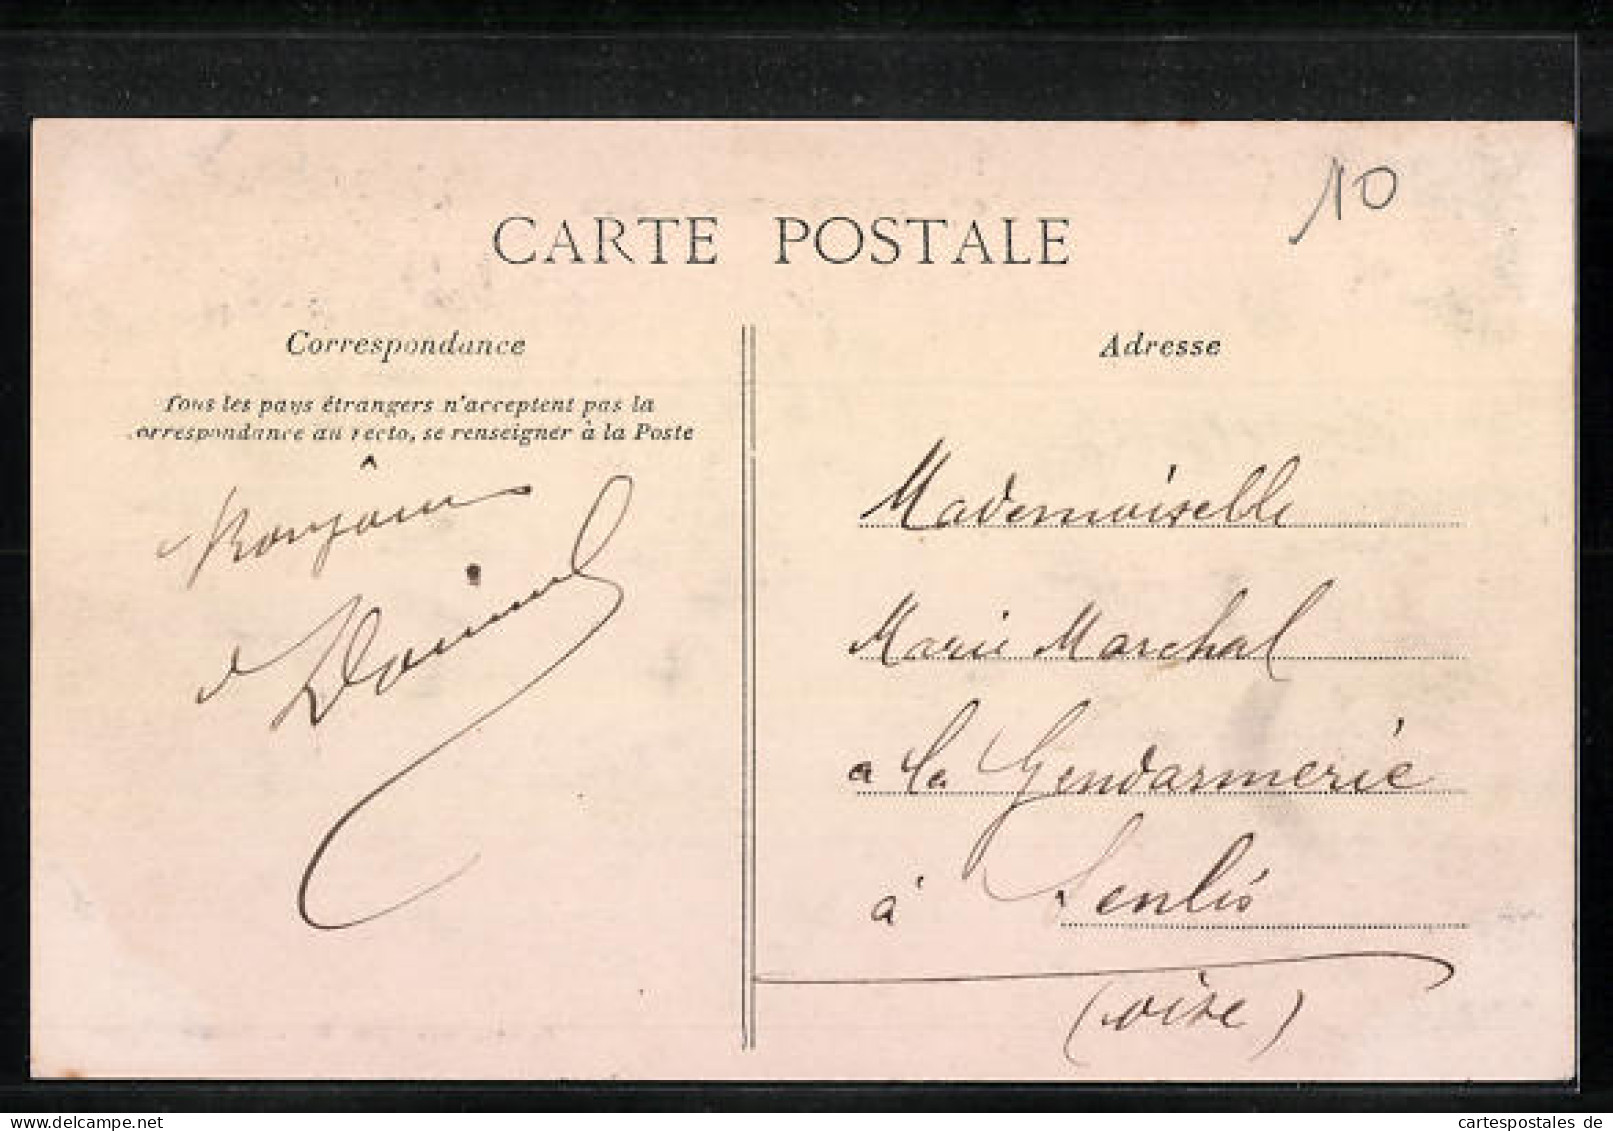 10
CARTE POSTALE
Correspondance
Tous les pays étrangers n'acceptent pas la
correspondance au recto, se renseigner à la Poste
Bonjour
Adresse
Mademoiselle
Marie Marchal
a la Gendarmerie
à Senlis
(oise)
cartespostales de